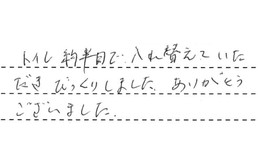 トイレ 約半日で 入れ替えていた
だき びっくりしました。ありがとう
ございました。